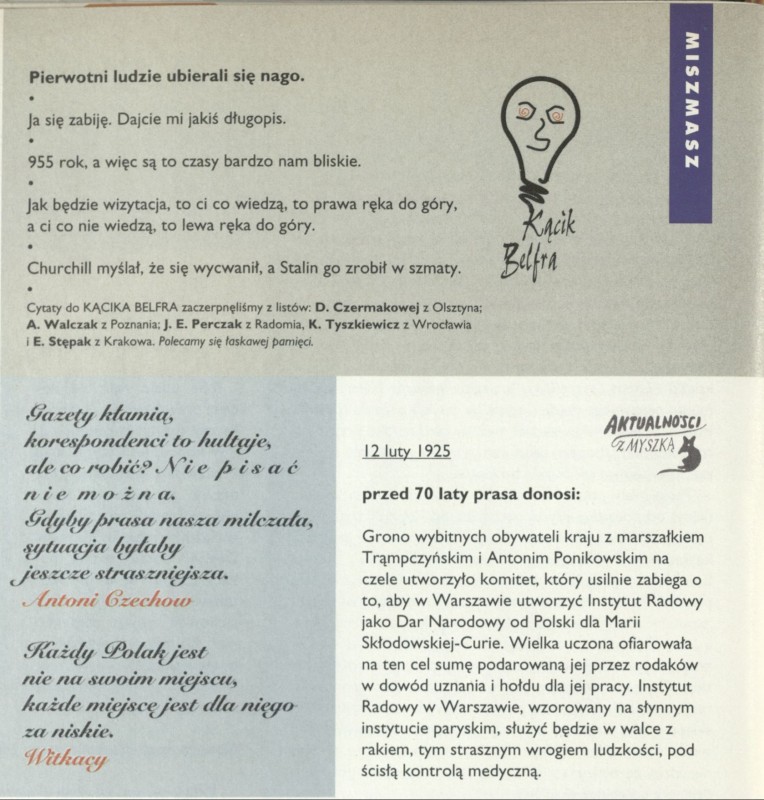 MISZMASZ
Pierwotni ludzie ubierali się nago.
•
Ja się zabiję. Dajcie mi jakiś długopis.
•
955 rok, a więc są to czasy bardzo nam bliskie.
•
Jak będzie wizytacja, to ci co wiedzą, to prawa ręka do góry,
a ci co nie wiedzą, to lewa ręka do góry.
•
Churchill myślał, że się wycwanił, a Stalin go zrobił w szmaty.
•
Cytaty do KĄCIKA BELFRA zaczerpnęliśmy z listów: D. Czermakowej z Olsztyna;
A. Walczak z Poznania; J. E. Perczak z Radomia, K. Tyszkiewicz z Wrocławia
i E. Stępak z Krakowa. Polecamy się łaskawej pamięci.
Kącik
Belfra
Gazety kłamią,
korespondenci to hultaje,
ale co robić? N i e p i s a ć
n i e m o ż n a.
Gdyby prasa nasza milczała,
sytuacja byłaby
jeszcze straszniejsza.
Antoni Czechow
Każdy Polak jest
nie na swoim miejscu,
każde miejsce jest dla niego
za niskie.
Witkacy
AKTUALNOŚCI
Z MYSZKĄ
12 luty 1925
przed 70 laty prasa donosi:
Grono wybitnych obywateli kraju z marszałkiem
Trąmpczyńskim i Antonim Ponikowskim na
czele utworzyło komitet, który usilnie zabiega o
to, aby w Warszawie utworzyć Instytut Radowy
jako Dar Narodowy od Polski dla Marii
Skłodowskiej-Curie. Wielka uczona ofiarowała
na ten cel sumę podarowaną jej przez rodaków
w dowód uznania i hołdu dla jej pracy. Instytut
Radowy w Warszawie, wzorowany na słynnym
instytucie paryskim, służyć będzie w walce z
rakiem, tym strasznym wrogiem ludzkości, pod
ścisłą kontrolą medyczną.